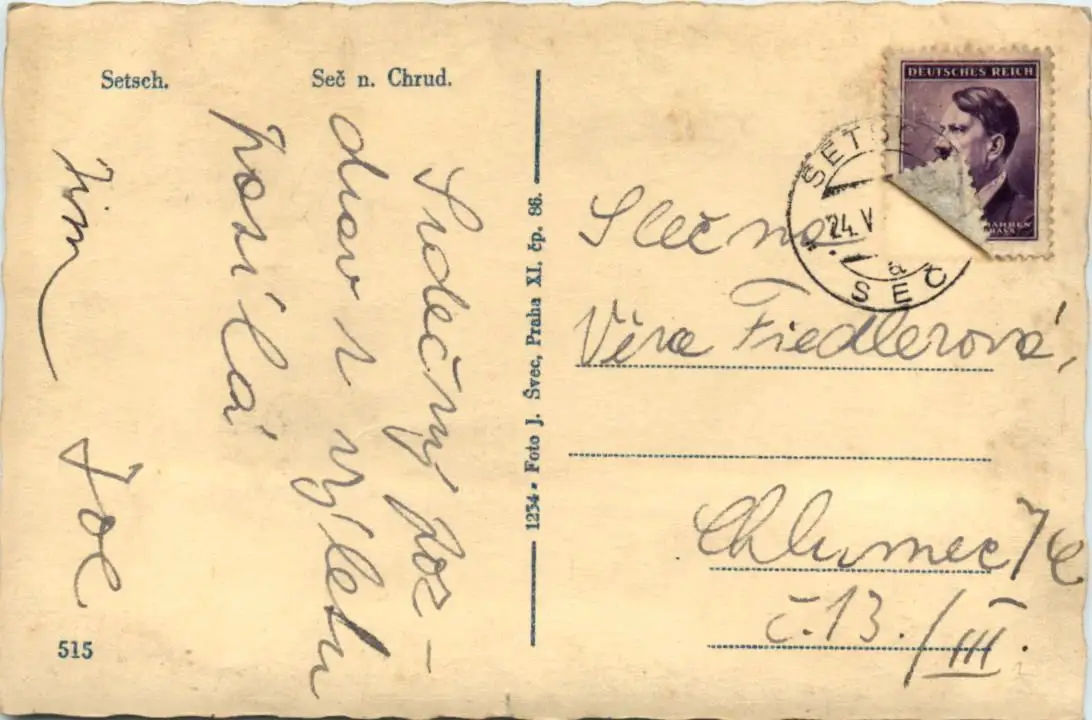 Setsch. Seč n. Chrud.
Srdečný poz-
drav z výletu
posílá
1234 - Foto J. Švec, Praha XI. čp. 86.
515
DEUTSCHES REICH
SETSC
24. V
a
SEČ
Slečna
Věra Fiedlerová,
Chlumec / C
č. 13. / III.